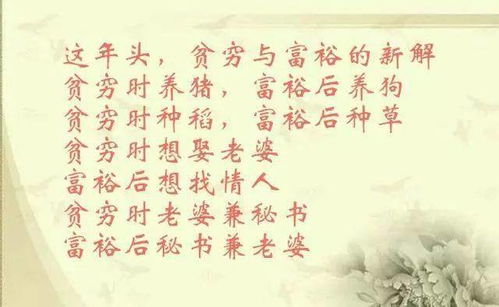 这年头，贫穷与富裕的新解
贫穷时养猪，富裕后养狗
贫穷时种稻，富裕后种草
贫穷时想娶老婆
富裕后想找情人
贫穷时老婆兼秘书
富裕后秘书兼老婆